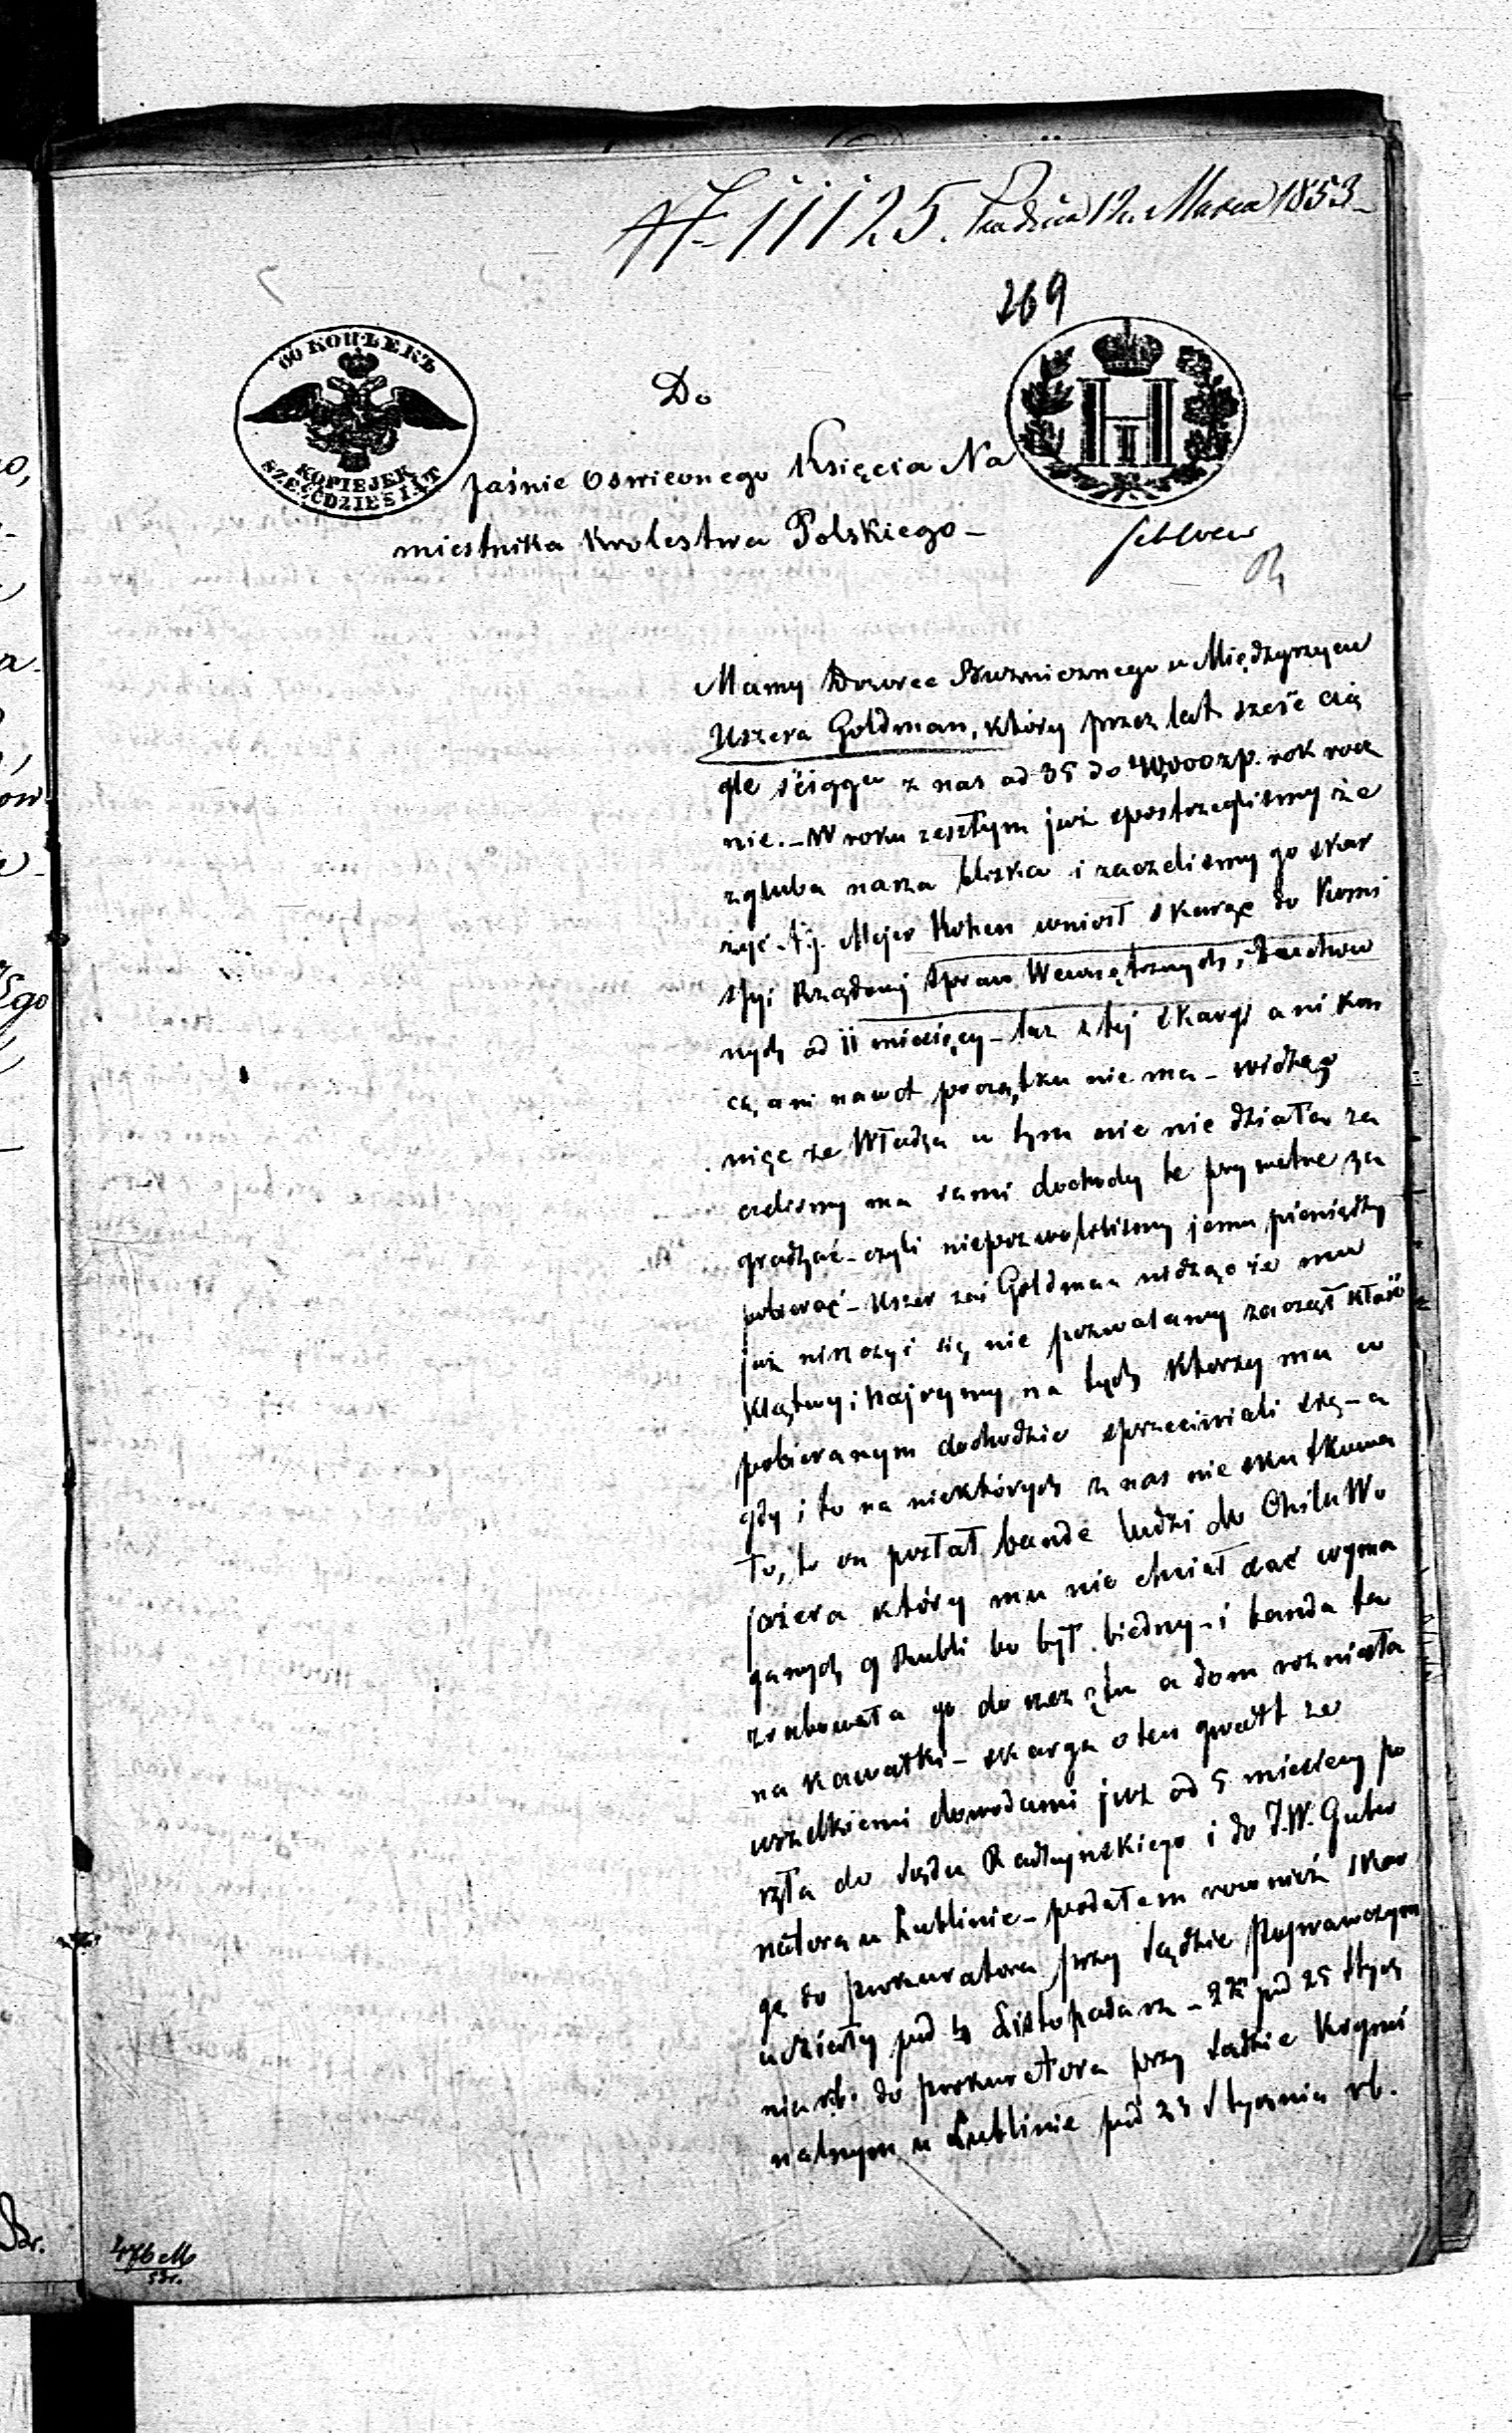 № 11125. 12. Marca 1853
269
60 КОПѢЕКЪ
KOPIEJEK
SZEŚĆDZIESIĄT
Do
Jaśnie Oswieconego Księcia Na
miestnika Krolestwa Polskiego –
Mamy Dozorce Bużnicznego w Międzyrzycu
Uszera Goldman, który przez lat sześć cią
gle ściąga z nas od 35 do 40,000 zp. rok rocz
nie. – W roku zeszłym już spostrzegliśmy że
zguba nasza bliska i zaczeliśmy go skar
żyć – tj. Mejer Kohen wniósł skargę do Komi
syi Rządowej Spraw Wewnętrznych i Duchow
nych od 11 miesięcy – lecz z tej skargi ani koń
ca, ani nawet początku nie ma – widząc
więc że Władza w tym nic nie działa za
czeliśmy mu sami dochody te prywatne za
gradzać – czyli niepozwoliliśmy jemu pieniędzy
pobierać – Uszer zaś Goldman widząc że mu
już niszczyć się nie pozwalamy zaczął kłaść
klątwy i Hajrymy na tych którzy mu w
pobieranym dochodzie sprzeciwiali się – a
gdy i to na niektórych z nas nie skutkowa
ło, to on posłał bande ludzi do Chila Wo
jażera który mu nie chciał dać wyma
ganych 9 Rubli bo był biedny – i banda ta
zrabowała go do szczętu a dom rozniosła
na kawałki – skarga o ten gwałt ze
wszelkiemi dowodami już od 5 miesięcy po
szła do Sądu Radzyńskiego i do J.W. Guber
natora w Lublinie – podałem rownież skar
gę do prokuratora przy Sądzie Poprawczym
w Siedlcy pod 4 Listopada rz – 2gą pod 25 stycz
nia rb. do prokuratora przy Sądzie Krymi
nalnym w Lublinie pod 23 stycznia rb.
476